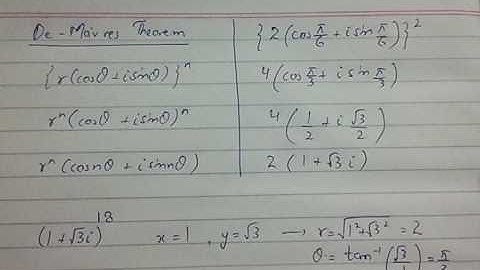 De-Moivres Theorem
{r(cosθ+isinθ)}ⁿ
rⁿ(cosθ +isinθ)ⁿ
rⁿ(cosnθ +isinnθ)
{2(cos π/6 + i sin π/6)}²
4(cos π/3 + i sin π/3)
4(1/2 + i √3/2)
2 (1+√3 i)
(1+√3i)¹⁸ x=1 , y=√3 → r=√(1²+√3²) =2
θ= tan⁻¹(√3/ )= π/3